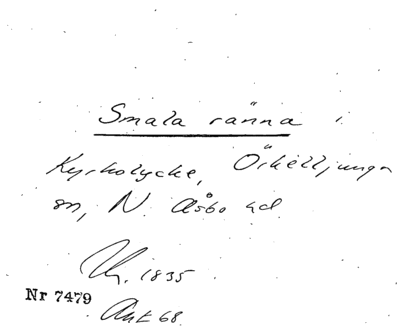 Smala ränna i
Kyrkolycke, Örkelljunga
sn, N. Åsbo hd
1835
Nr 7479
Ant 68